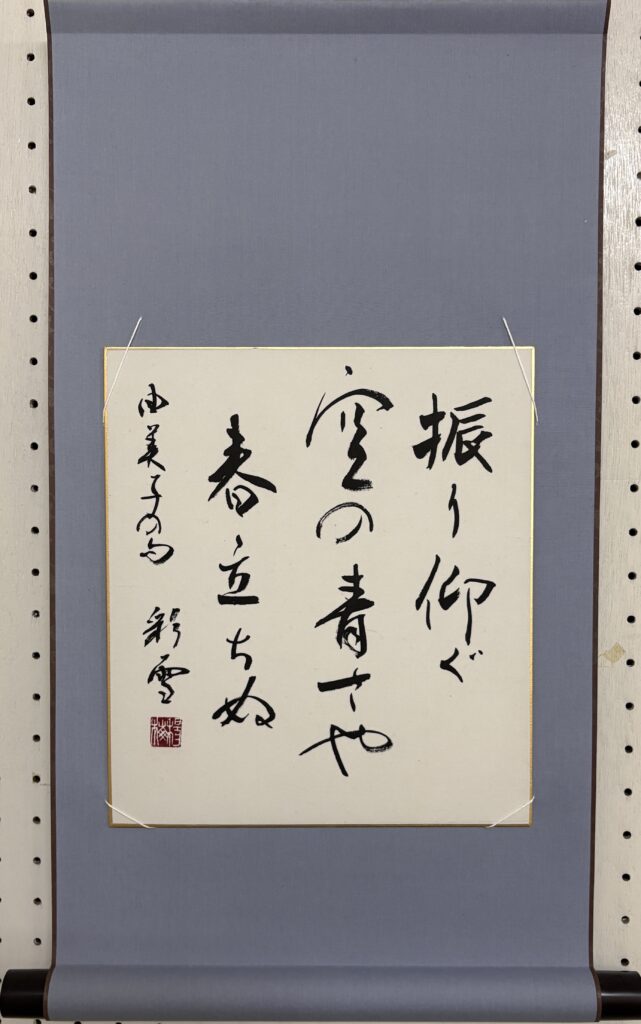 振り仰ぐ
空の青さや
春立ちぬ
由美子の句 彩雪